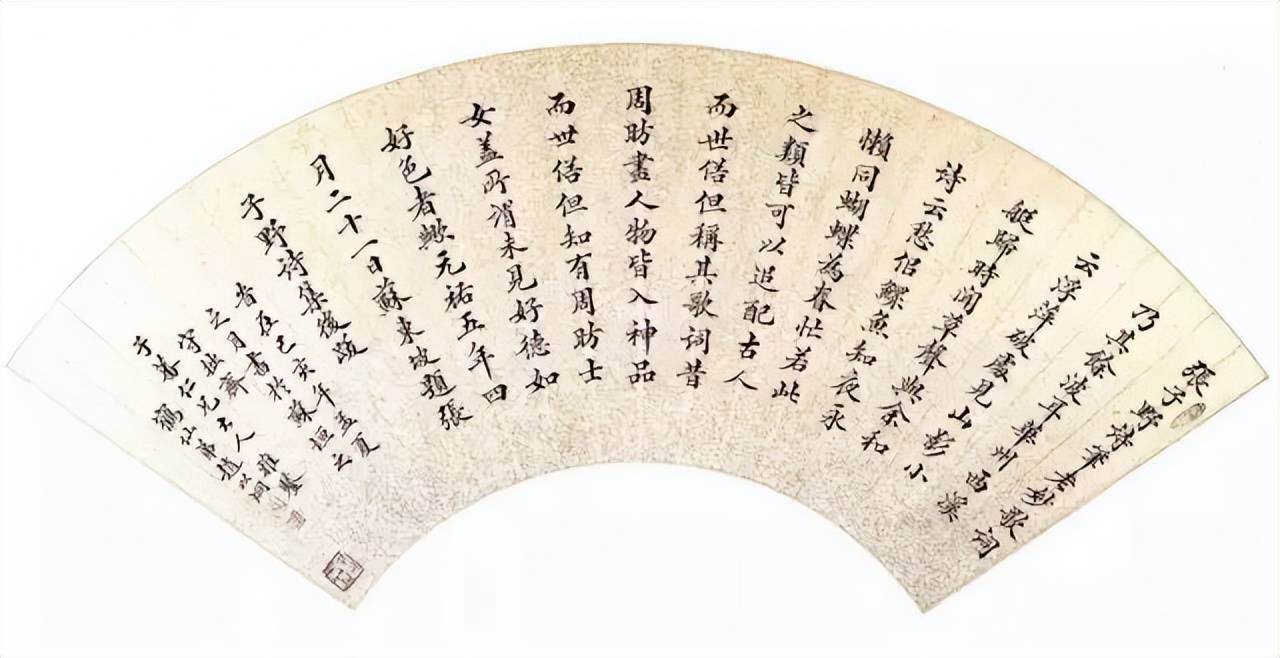 張子野詩筆老妙歌詞
乃其餘波耳華州西溪
云浮萍破處見山影小
艇歸時聞草聲與余和
詩云愁侶鰥魚知夜永
懶同蝴蝶為春忙若此
之類皆可以追配古人
而世俗但稱其歌詞昔
周昉畫人物皆入神品
而世俗但知有周昉士
女蓋所謂未見好德如
好色者歟元祐五年四
月二十一日蘇東坡題張
子野詩集後跋
在己亥年孟夏
之月書於蘇垣
守拙齋
仁兄大人雅鑒
鶴仙弟趙以炯